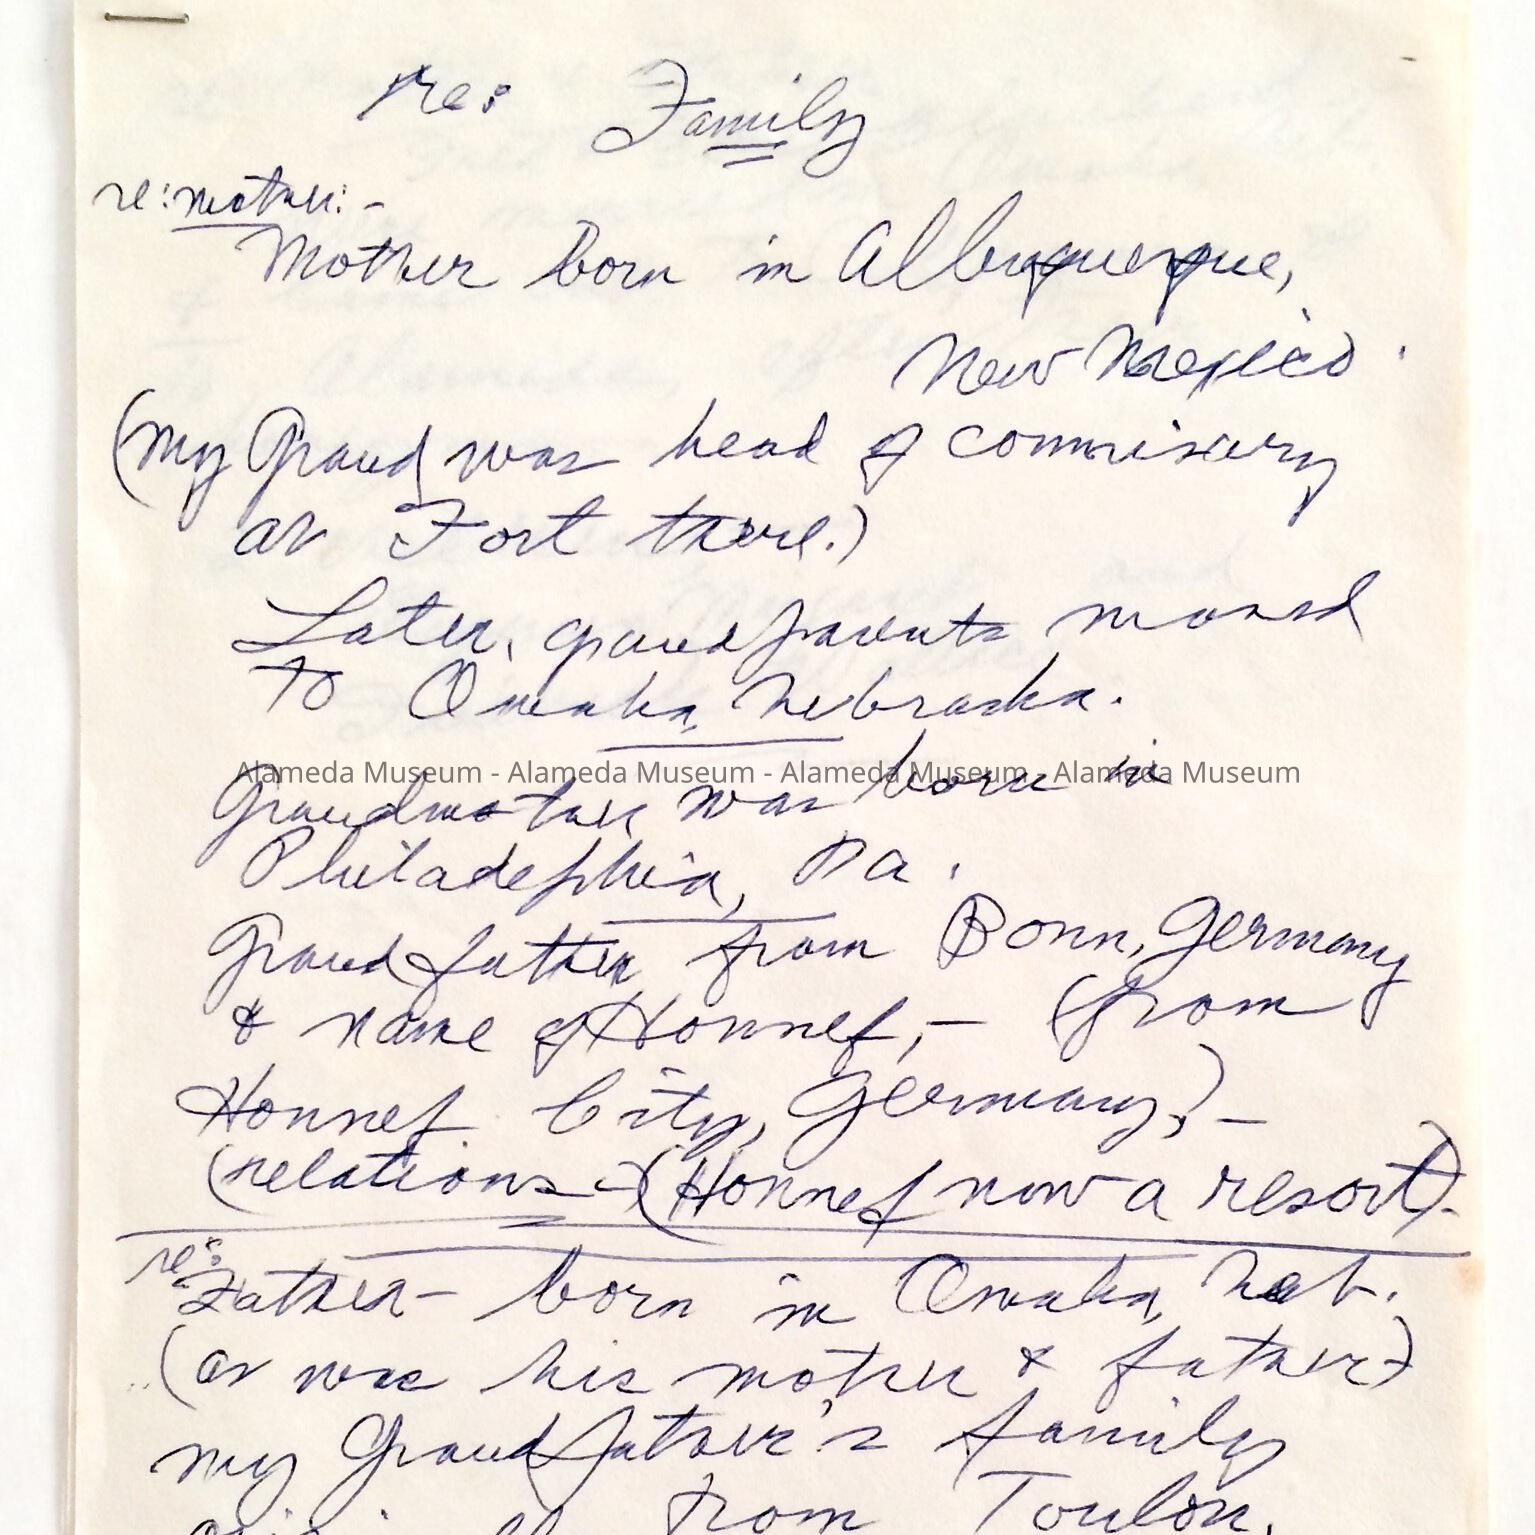 re: Family
re: mother: -
Mother born in Albuquerque,
New Mexico.
(my Grand was head of commissary
at Fort there.)
Later, grandparents moved
to Omaha, Nebraska.
Alameda Museum - Alameda Museum - Alameda Museum - Alameda Museum
Grandmother was born in
Philadephia, Pa.
Grandfather from Bonn, Germany
& name of Honnef, - (from
Honnef City, Germany,) -
(relations - (Honnef now a resort).
re:
Father - born in Omaha, Neb.
(as was his mother & father)
my Grandfather's family
from Toulon,